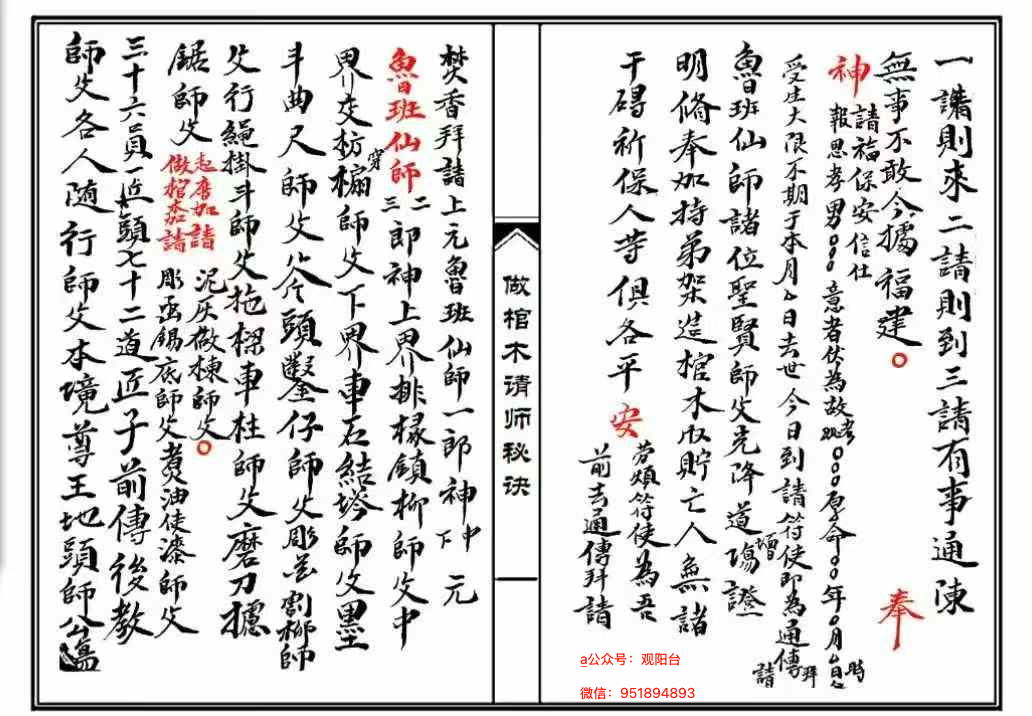 一請則來二請則到三請有事通陳
無事不敢今據福建○ 奉
神 請福保安信仕
報恩孝男○○○意者伏為故 考 妣 ○○○原命○○年○月○日○時
受生大限不期于本月○日去世今日到請符使即為通傳 拜請
魯班仙師諸位聖賢師父光降道場 壇 證
明修奉加持弟架造棺木收貯亡人無諸
干碍祈保人等俱各平安
勞煩符使為吾
前去通傳拜請
做棺木请师秘诀
焚香拜請上元魯班仙師一郎神 中 下 元
魯班仙師 二 三 郎神上界排椽鎖柳師父中
界交枋 穿 榍師父下界車石結塔師父墨
斗曲尺師父斧頭鑿仔師父彫花割柳師
父行繩掛斗師父拖樑車柱師父磨刀攄
鋸師父
起厝加請
做棺木加請
泥灰徼棟師父○
彫函錫底師父煮油使漆師父
三十六員匠頭七十二道匠子前傳後教
師父各人随行師父本境尊王地頭師公
a公众号：观阳台
微信：951894893